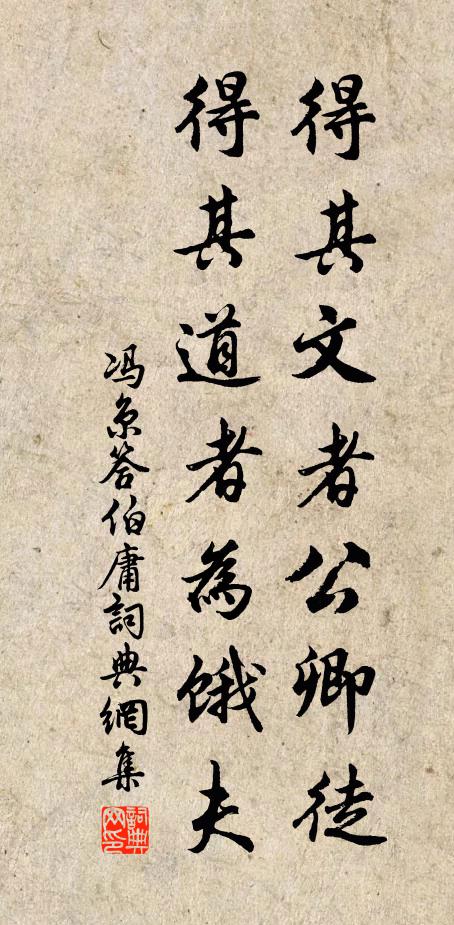 得其文者公卿徒
得其道者為餓夫
冯京答伯庸詞典網集
詞典網印